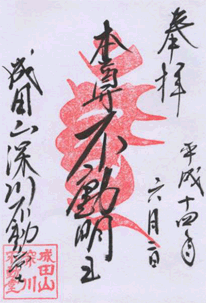 奉拝
平成十四年
六月二日
本尊不動明王
成田山深川不動堂
成田山
深川
不動堂